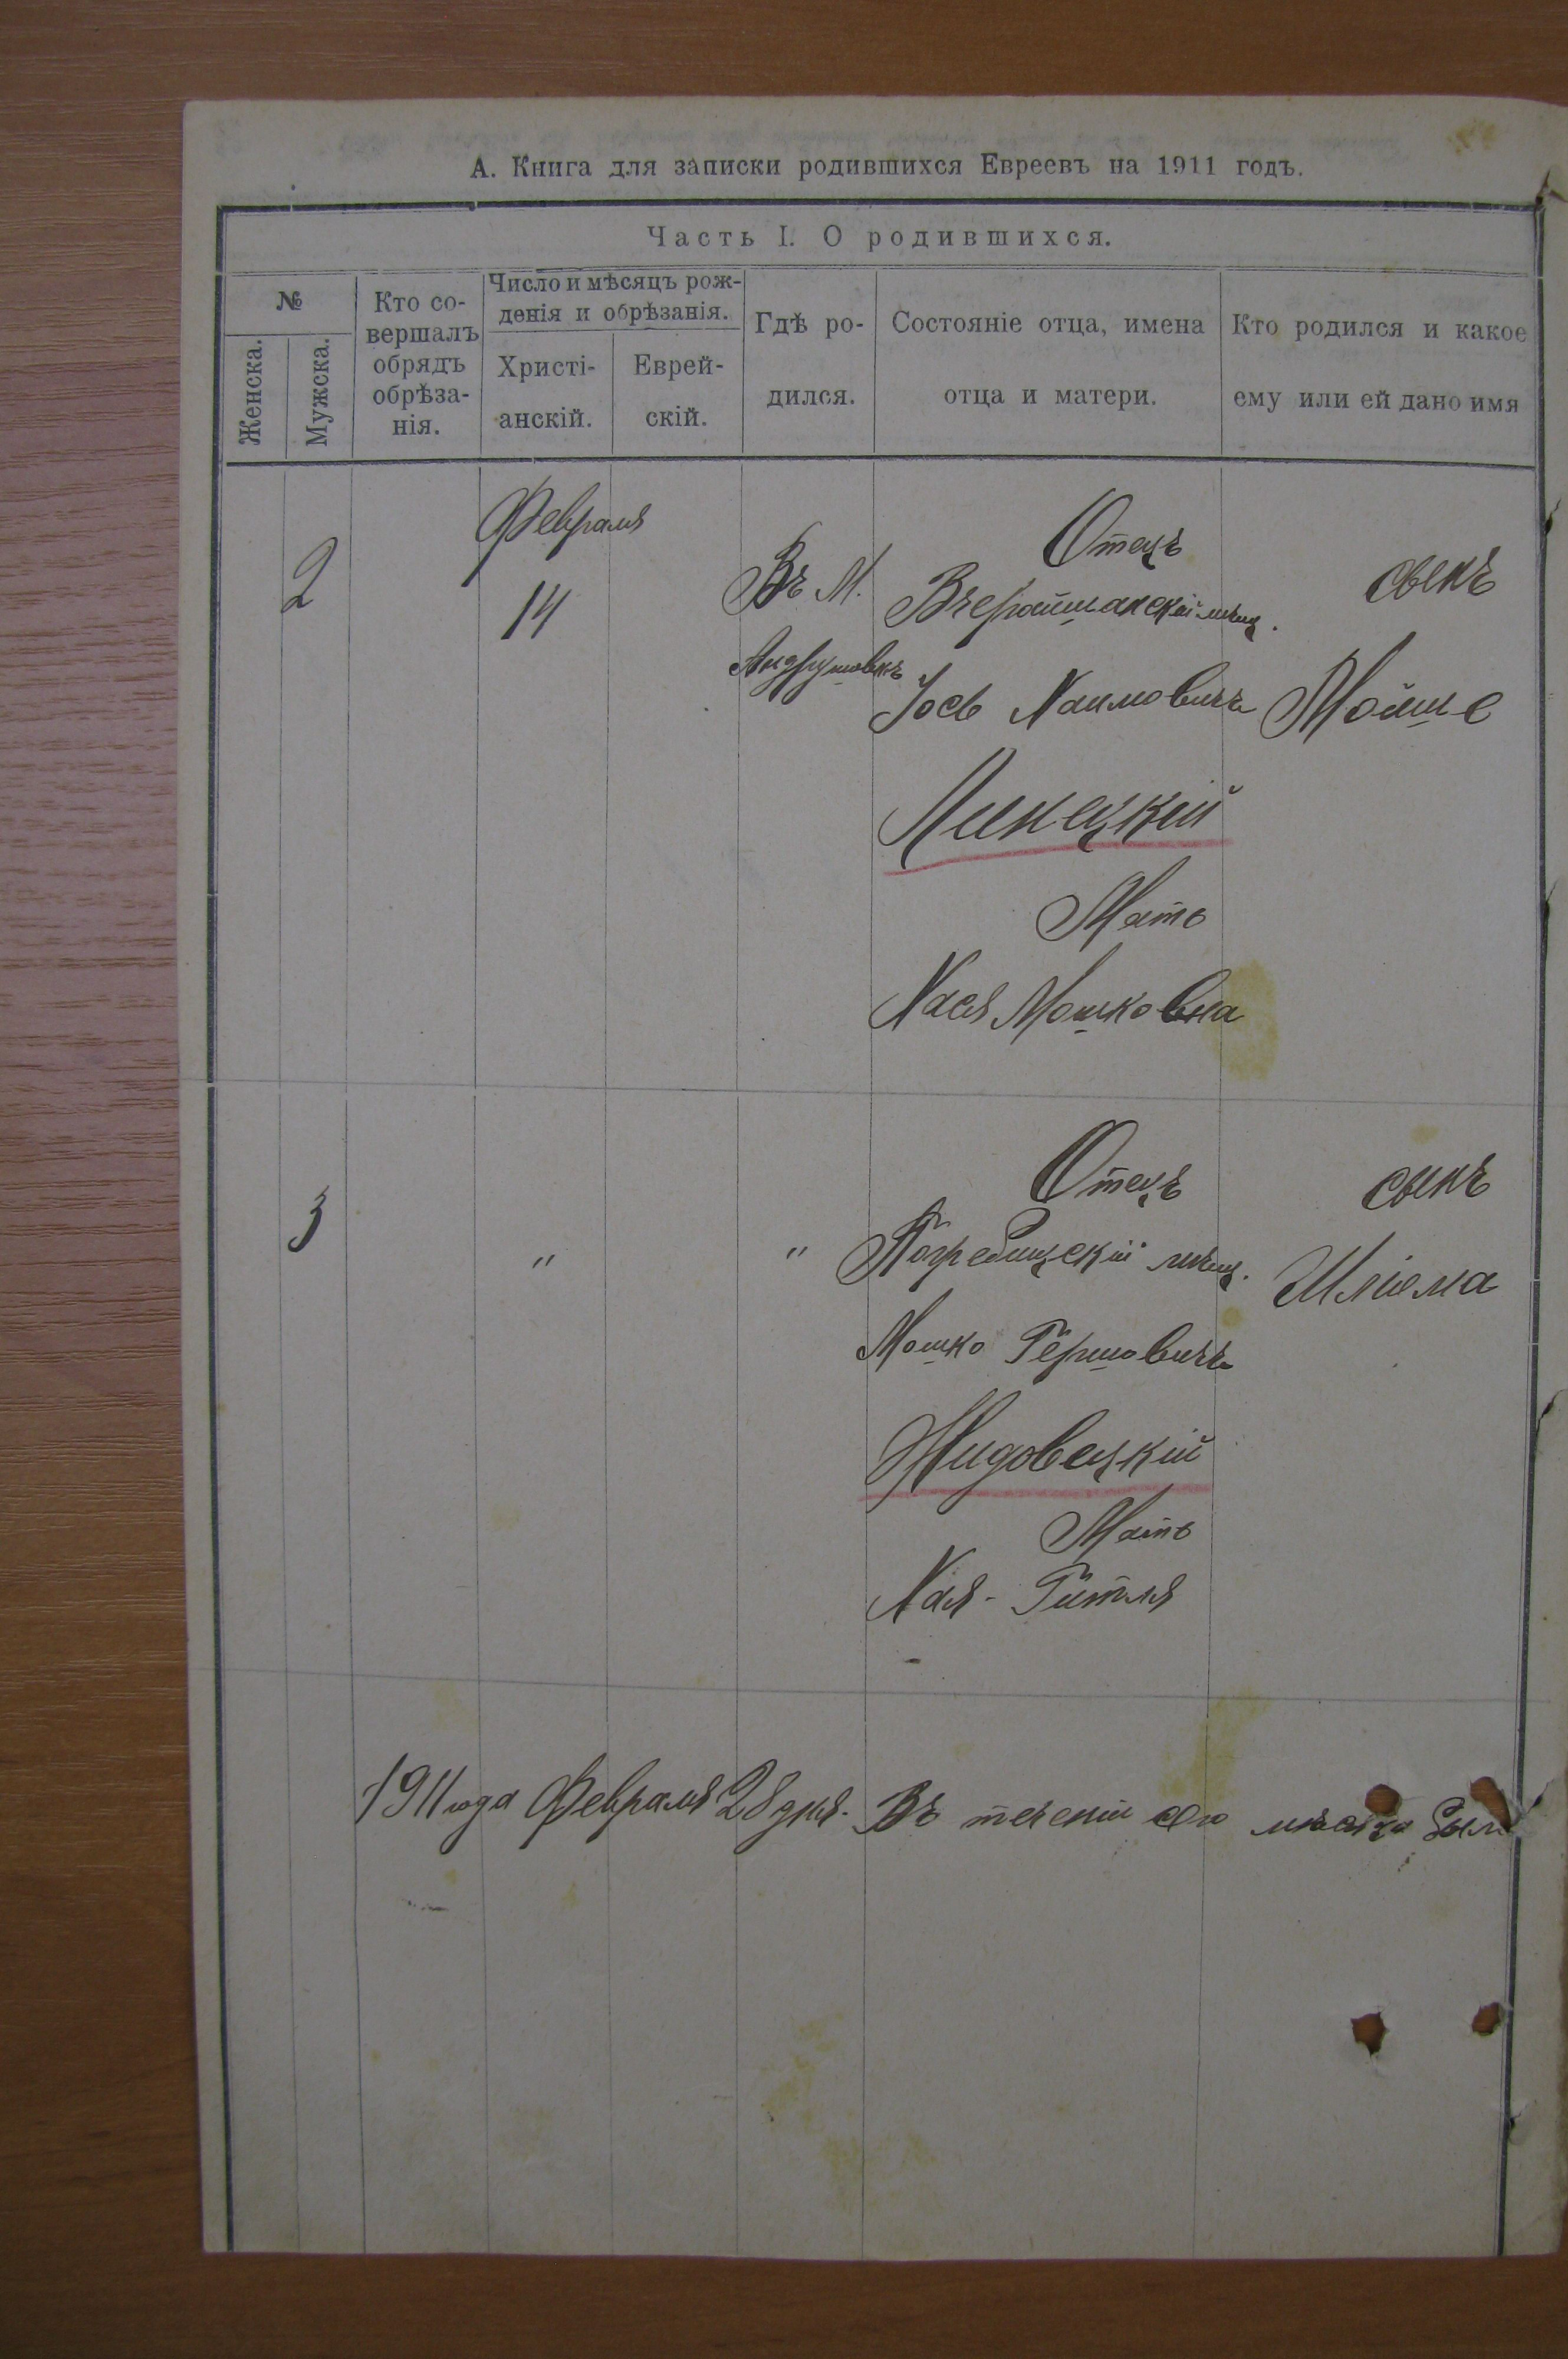 А. Книга для записки родившихся Евреевъ на 1911 годъ.
Часть I. О родившихся.
№
Женска.
Мужска.
Кто со-
вершалъ
обрядъ
обрѣза-
нія.
Число и мѣсяцъ рож-
денія и обрѣзанія.
Христі-
анскій.
Еврей-
скій.
Гдѣ ро-
дился.
Состояніе отца, имена
отца и матери.
Кто родился и какое
ему или ей дано имя
2
Февраля
14
Въ М.
Андрушовкѣ
Отецъ
Вчерайшанскій мѣщ.
Іось Хаимовичъ
Линецкій
Мать
Хася Мошковна
сынъ
Мойше
3
"
"
Отецъ
Погребищскій мѣщ.
Мошко Гершовичъ
Жидовецкій
Мать
Хая-Гитля
сынъ
Шліома
1911 года Февраля 28 дня. Въ теченіи сего мѣсяца